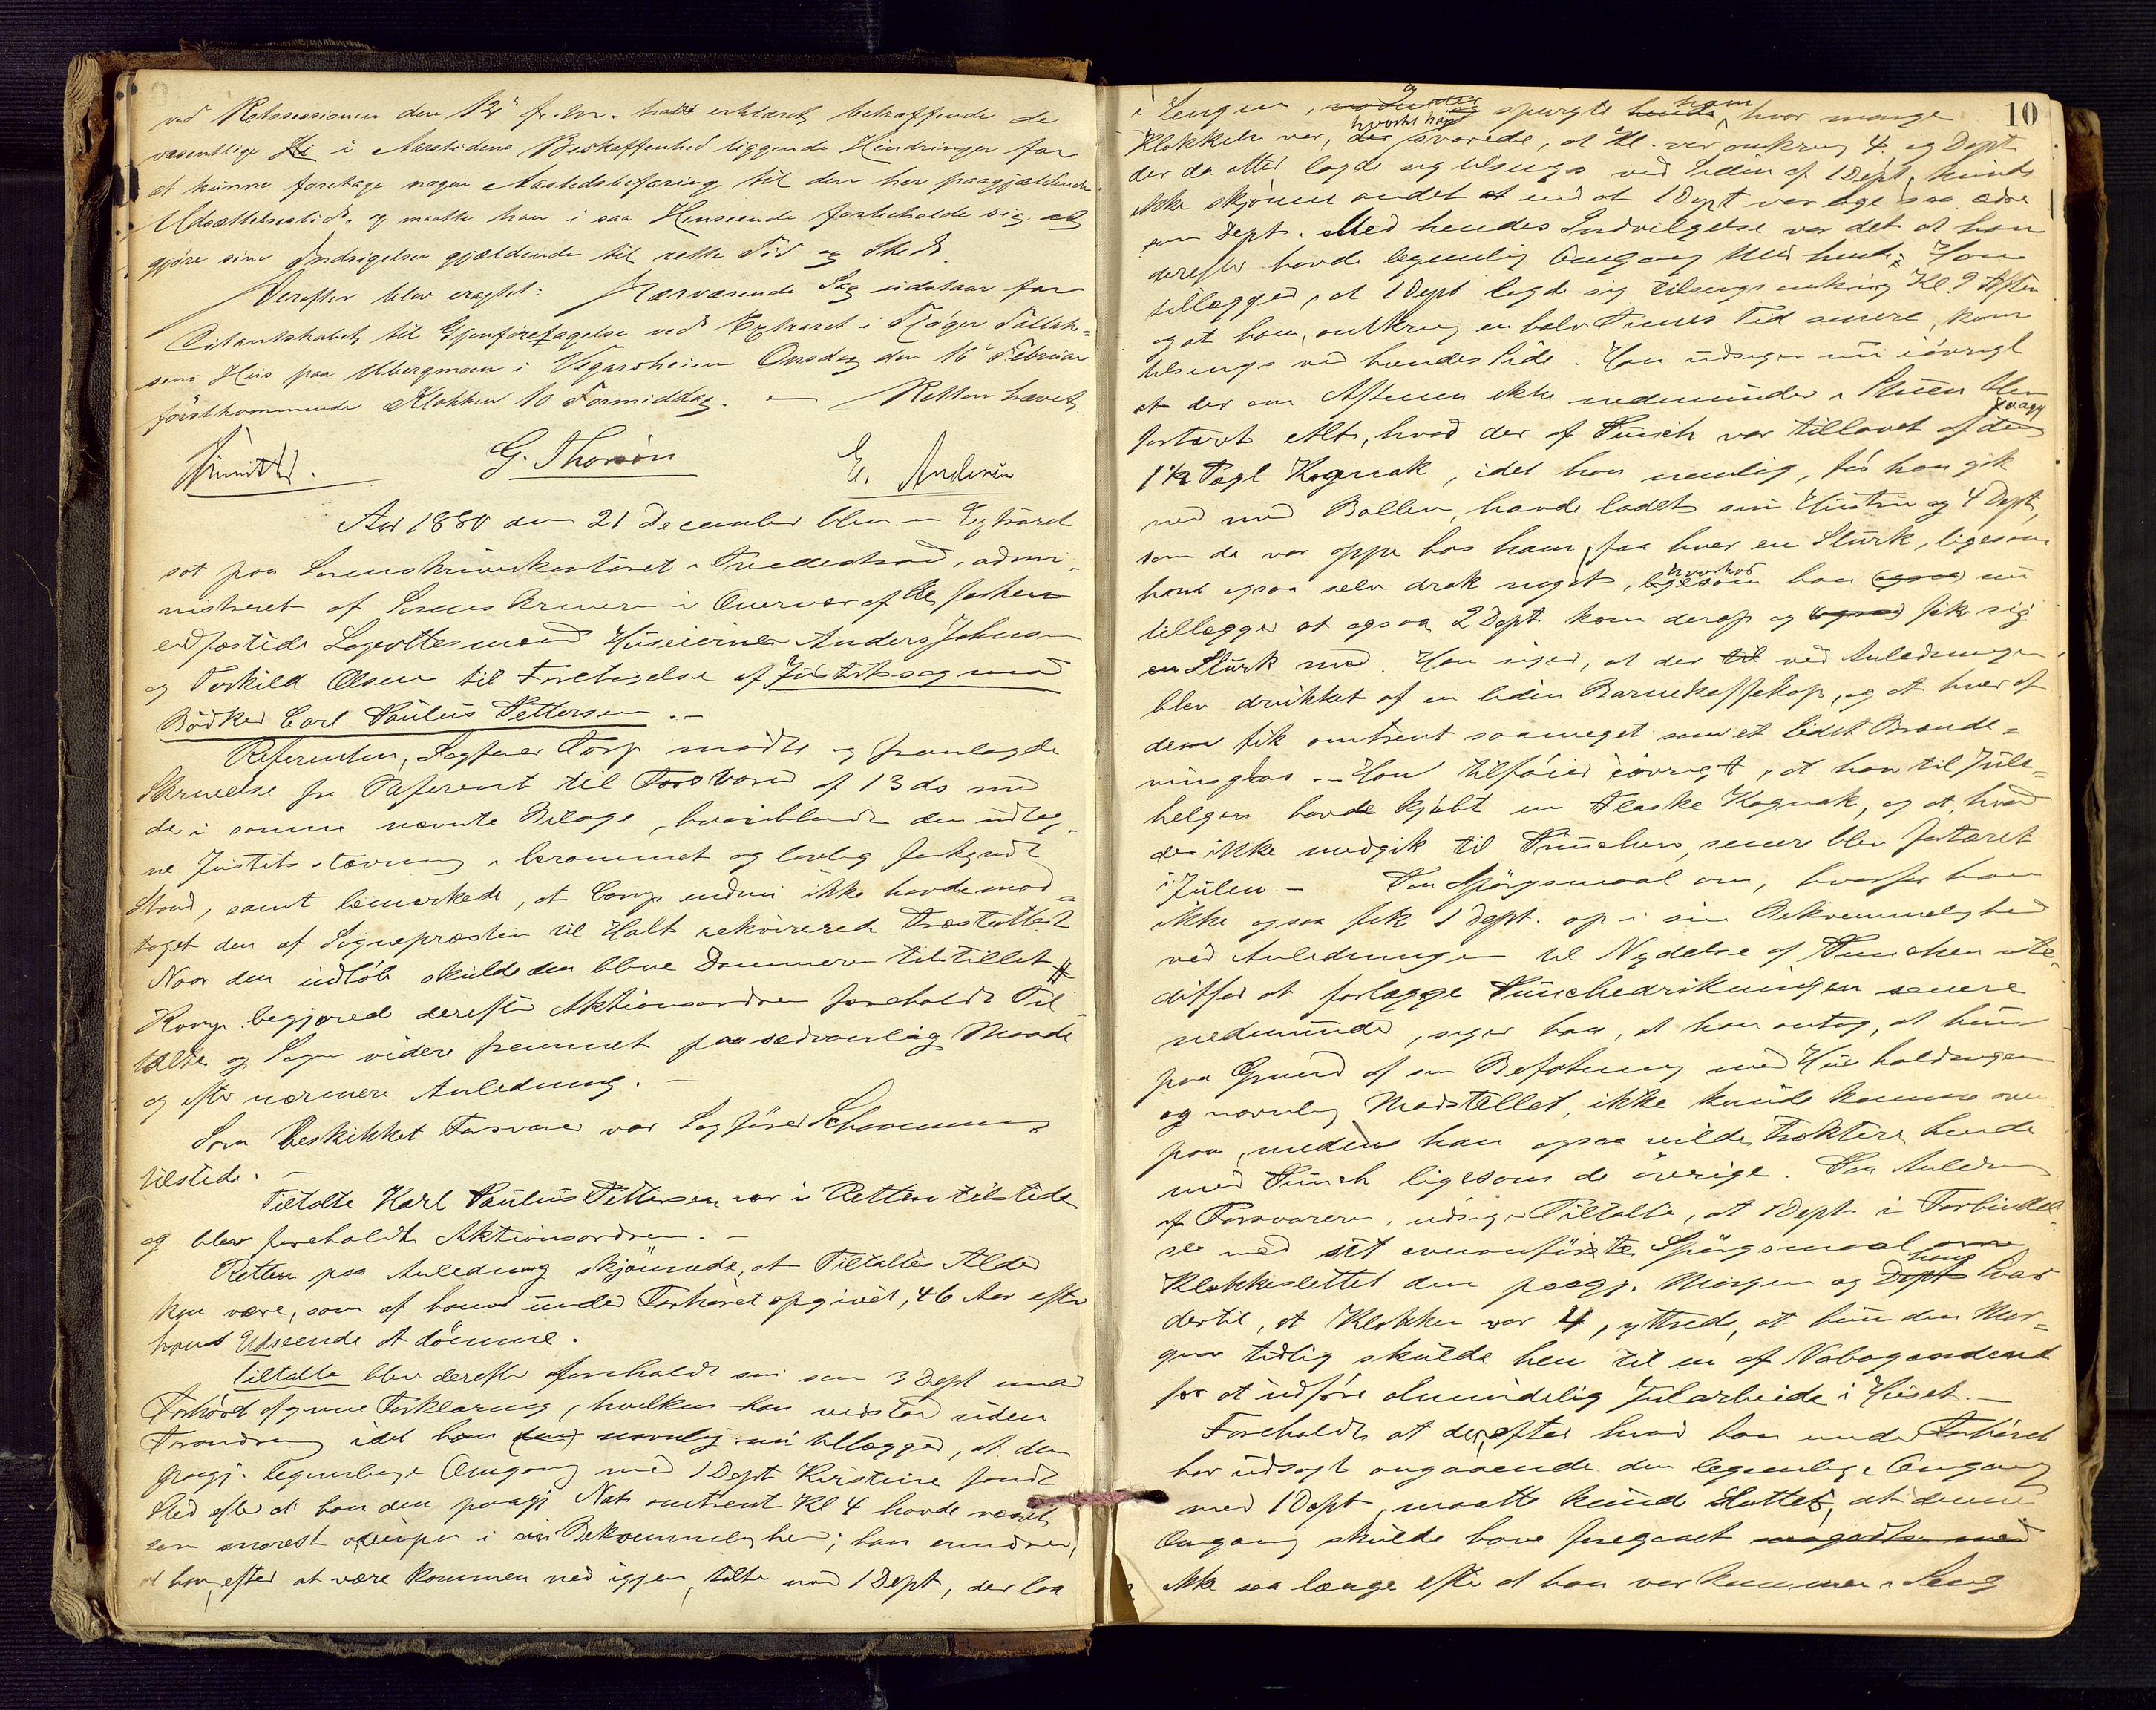 ved Retssessionen den 12te f.m. havt erklæret betræffende de
væsentlige i Aarstidens Beskaffenhed liggende Hindringer for
at kunne foretage nogen Aastedsbefaring til den her paagjældende
Udsættelsestid, og maatte han i saa Henseende forbeholde sig at
gjøre sine Indsigelser gjældende til rette Tid og Sted.
Derefter blev eragtet: Nærværende Sag udstaar for
Citantskabet til Gjenforetagelse ved Extraret i Tjøger Tallak=
sens Hus paa Ubergmoen i Vegarsheien Onsdag den 16de Februar
førstkommende Klokken 10 Formiddag. — Retten hævet.
G. Thorsen E. Andersen
Aar 1880 den 21 December blev en Extraret
sat paa Sorenskriverkontoret i Tvedestrand, admi-
nistreret af Sorenskriveren i Overvær af de
edfæstede Lagrettesmænd Huseierne Anders Johnsen
og Torkild Olsen til Foretagelse af Justitssag mod
Bødker Carl Paulus Pettersen. —
Referenten, Sagfører Torp mødte og fremlagde
Skrivelse fra Referent til Forsvarer af 13 ds med
de i samme nævnte Bilage, hvoriblandt den udtag-
ne Justitsstævning i berammet og lovlig forkyndt
Stand, samt bemærkede, at Comp. endnu ikke havde mod=
taget den af Sognepræsten til Holt rekvirerede Præsteattest
Naar den indløb skulde den blive Dommeren tilstillet #
Komp. begjæred derefter Aktionsordren foreholdt Til-
talte og Sagen videre fremmet paa sedvanlig Maade
og efter nærmere Anledning. —
Som beskikket Forsvarer var Sagfører Schonning
tilstede. —
Tiltalte Karl Paulus Pettersen var i Retten tilstede
og blev foreholdt Aktionsordren. —
Retten paa Anledning skjønnede, at Tiltaltes Alder
kan være, som af ham under Forhøret opgivet, 46 Aar efter
hans Udseende at dømme.
Tiltalte blev derefter foreholdt sin som 3 Dept under
Forhøret afgivne Forklaring, hvilken han vedstod uden
Forandring idet han navnlig nu tillægger, at den
paagj. legemlige Omgang med 1 Dept Kirstine fandt
Sted efter at han den paagj Nat omtrent Kl 4 havde været
som snarest ovenpaa i sin Bekvemmelighed; han erindrer,
at han, efter at være kommen ned igjen, talte med 1 Dept, der laa
10
i Sengen, og spurgte ham, hvor mange
Klokken var, hvortil han svarede, at Kl. var omkring 4. og Dept
der da atter lagde sig tilsengs ved Siden af 1 Dept, kunde
ikke skjønne andet at end at 1 Dept var lige saa ædru
som Dept. Med hendes Indvilgelse var det at han
derefter havde legemlig Omgang med hende. Han
tillægger, at 1 Dept lagde sig tilsengs omkring Kl. 9 Aften
og at han, omkring en halv Times Tid senere, kom
tilsengs ved hendes Side. Han udsiger nu iøvrigt
at der om Aftenen ikke nedenunder i Stuen blev
fortæret Alt, hvad der af Punch var tillavet af den paagj
1½ Pægl Kognak, idet han nemlig, før han gik
ned med Bollen, havde ladet sin Hustru og 4 Dept,
som da var oppe hos ham, faa hver en Slurk, ligesom
han ogsaa selv drak noget, hvorhos han nu
tillægger at ogsaa 2 Dept kom derop og fik sig
en Slurk med. Han siger, at der ved Anledningen
blev drukket af en liden Barnekaffekop, og at hver af
dem fik omtrent saameget som et lidet Brænde=
vinsglas. — Han tilføier iøvrigt, at han til Jule-
helgen havde kjøbt en Flaske Kognak, og at, hvad
der ikke medgik til Punchen, senere blev fortæret
i Julen. — Paa Spørgsmaal om, hvorfor han
ikke ogsaa fik 1 Dept. op i sin Bekvemmelighed
ved Anledningen til Nydelse af Punchen iste-
detfor at forlægge Punchedrikningen senere
nedenunder, siger han, at han antog, at hun
paa Grund af sin Befatning med Husholdningen
og navnlig Madstellet, ikke kunde komme oven
paa, medens han ogsaa vilde traktere hende
med Punch ligesom de øvrige. Paa Anledn.
af Forsvareren, udsiger Tiltalte, at 1 Dept i Forbindel-
se med sit ovenanførte Spørgsmaal om
Klokkeslettet den paagj. Morgen og hans Svar
dertil, at Klokken var 4, yttrede, at hun den Mor=
gen tidlig skulde hen til en af Nabogaardene
for at udføre almindelig Julearbeide i Huset. —
Foreholdt at der, efter hvad han under Forhøret
har udsagt angaaende den legemlige Omgang
med 1 Dept, maatte kunde sluttes, at denne
Omgang skulde have foregaaet
ikke saa længe efter at han var kommen i Seng